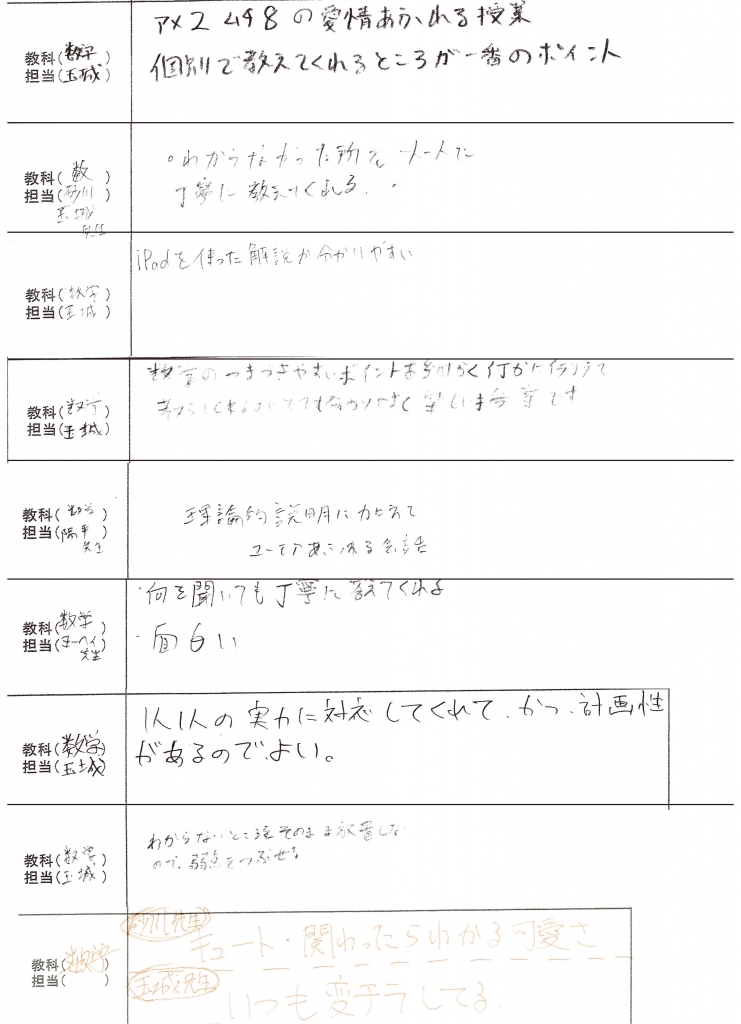 アメ2ム98の愛情あふれる授業
教科(数学)
担当(玉城)
個別で教えてくれるところが一番のポイント
教科(数)
担当(砂川
玉城
先生
・わからなかった所をノートに
丁寧に教えてくれる.
教科(数学)
担当(玉城)
iPadを使った解説が分かりやすい
教科(数学)
担当(玉城)
数学のつまづきやすいポイントを
教科(数学)
担当(陽平
先生
理論的説明に加えて
ユーモアあふれる会話
教科(数学)
担当(ヨーヘイ)
先生
・何を聞いても丁寧に教えてくれる
・面白い
教科(数学)
担当(玉城)
1人1人の実力に対応してくれて、かつ、計画性
があるのでよい。
教科(数学)
担当(玉城)
わからないところをそのまま放置しない
ので、弱点をつぶせる
教科(数学)
担当( )
砂川先生
キュート・関わったらわかる可愛さ
玉城先生
いつも変チラしてる.